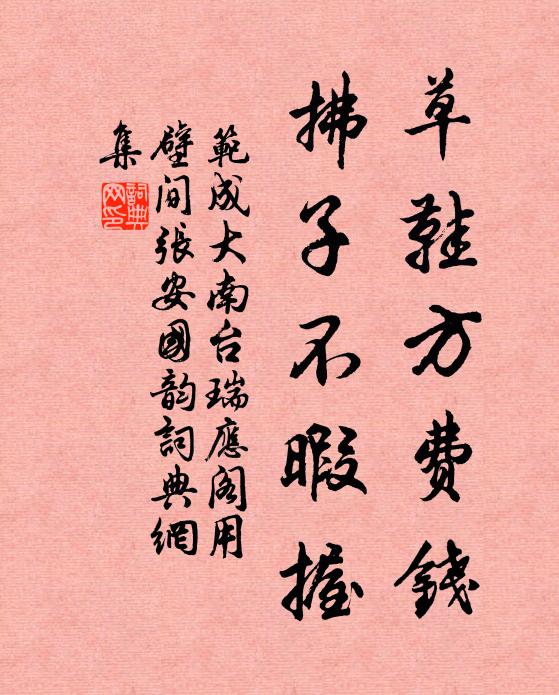 草鞋方费錢
拂子不暇握
範成大南台瑞應阁用
壁间張安國韵詞典網
集
詞典网印